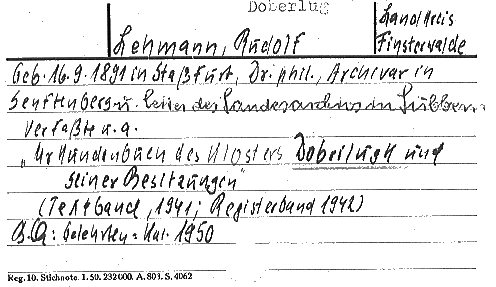 Doberlug
Landkreis
Lehmann, Rudolf
Finsterwalde
Geb. 16.9.1891 in Staßfurt, Dr. phil., Archivar in
Senftenberg u. Leiter des Landesarchivs in Lübben.
Verfaßte u.a.
„Urkundenbuch des Klosters Doberlugk und
seiner Besitzungen"
(Textband, 1941; Registerband 1942)
Gelehrten-Kal. 1950
Reg. 10. Stichnote. 1. 50. 232000. A. 803. S. 4062